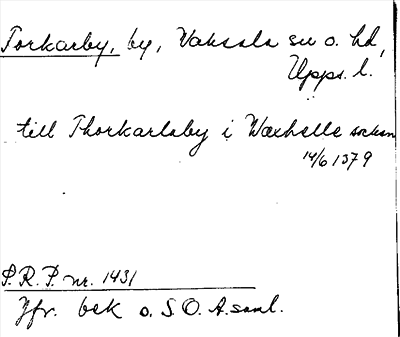 Torkarby, by, Vaksala sn o. hd,
Upps. l.
till Thorkarlaby i Waxhelle socken
14/6 1379
S.R.P. nr. 1431
Jfr. bek o. S.O.A. saml.